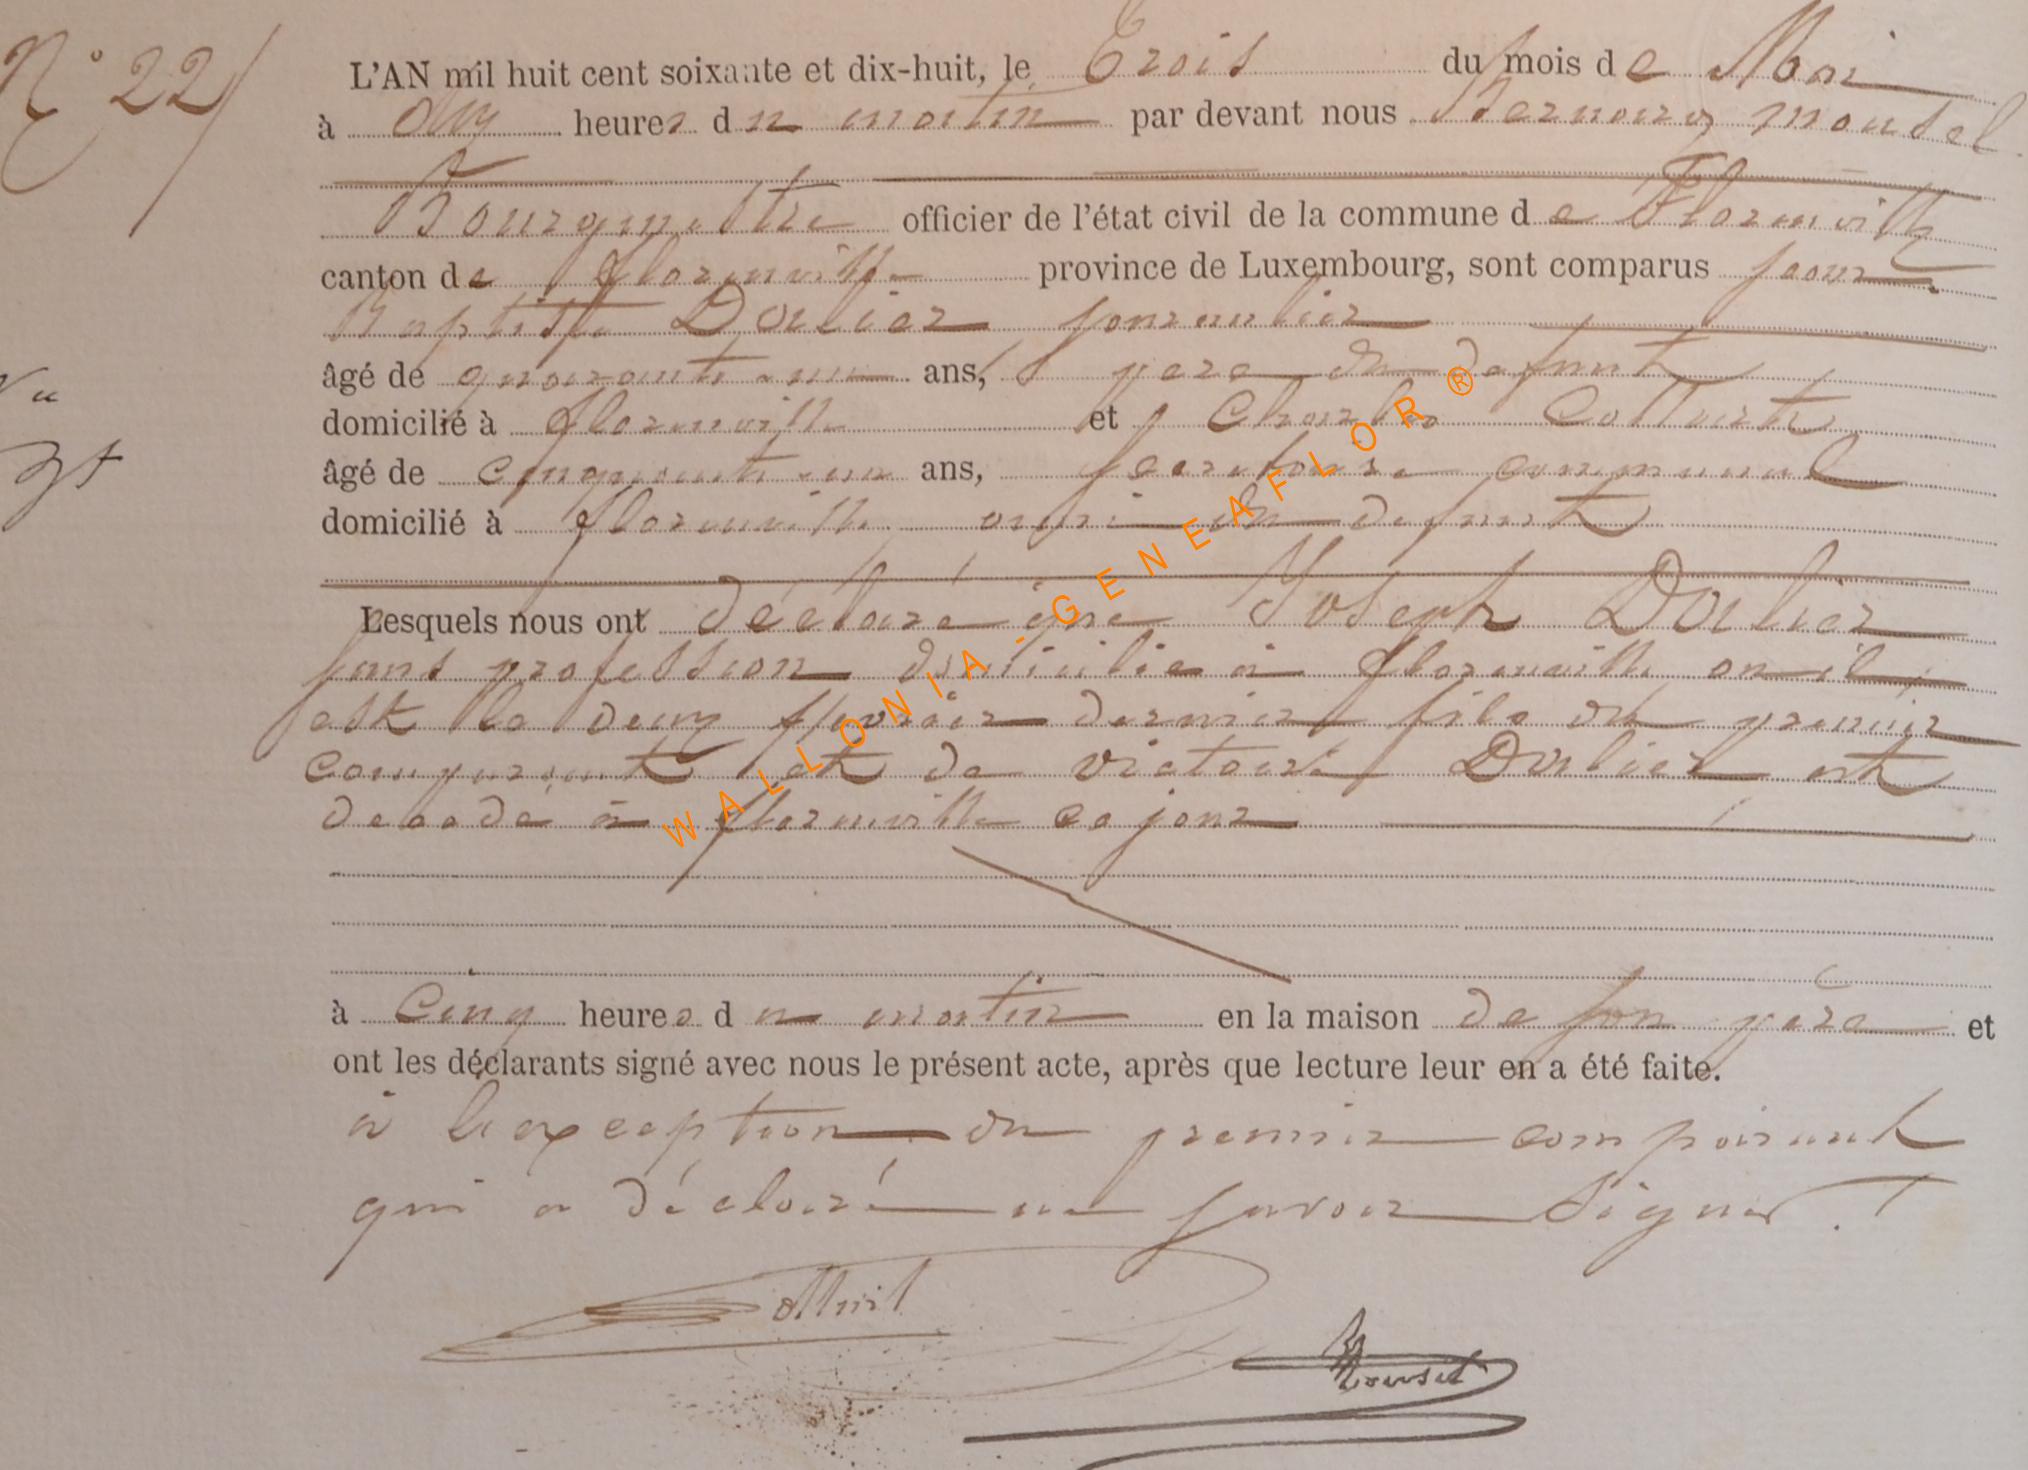 N° 22
L'AN mil huit cent soixante et dix-huit, le Trois du mois de Mai
à dix heures du matin par devant nous
Bourgmestre officier de l'état civil de la commune de Florenville
canton de florenville province de Luxembourg, sont comparus jean
Baptiste Dalier journalier
âgé de quarante-un ans, père du défunt
domicilié à florenville et Charles
âgé de cinquante-un ans, secretaire communal
domicilié à florenville ami du défunt
Vu
Lesquels nous ont déclaré que Joseph Dalier
sans profession domicilié à florenville où il
est né le deux février dernier fils du premier
comparant et de victoire Dalier est
décédé à florenville ce jour
à cinq heures du matin en la maison de son père et
ont les déclarants signé avec nous le présent acte, après que lecture leur en a été faite.
à l'exception du premier comparant
qui a déclaré ne savoir signer.
WALLONIA - GENEAFLOR ®